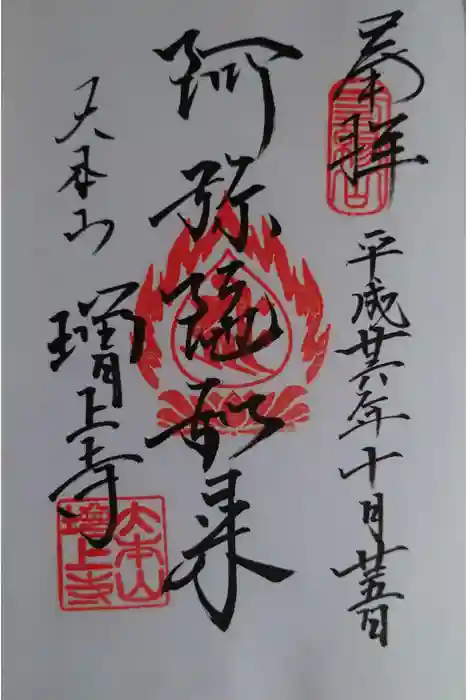 奉拝
平成廿六年十月廿五日
阿弥陀如来
大本山
増上寺
大本山
増上寺